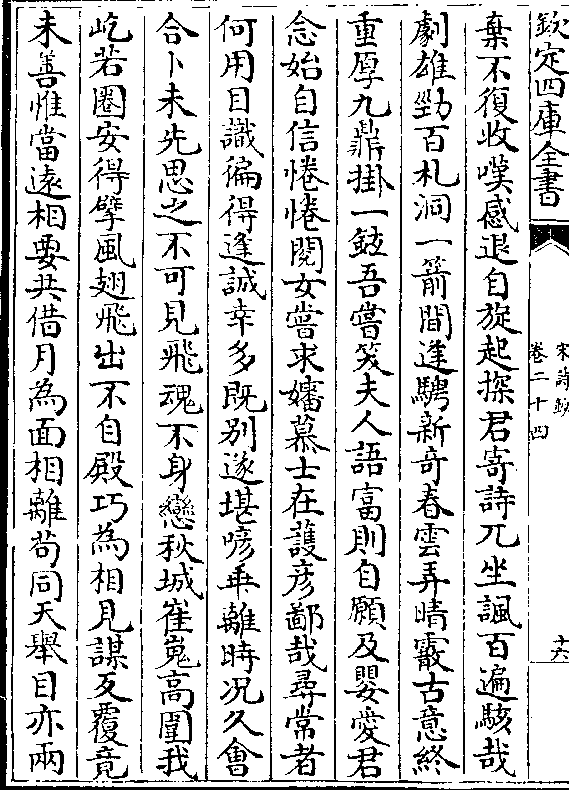 欽定四庫全書
宋詩鈔
卷二十四
十六
棄不復收嘆感退自旋起探君寄詩兀坐諷百遍駭哉
劇雄勁百札洞一箭間逢騁新奇春雲弄晴霰古意終
重厚九鼎掛一鉉吾嘗笑夫人語富則自願及嬰愛君
念始自信惓惓閱女嘗求嬏慕士在護彦鄙哉尋常者
何用目識徧得逢誠幸多既别遂堪唁乗離時况久會
合卜未先思之不可見飛魂不身戀秋城崔嵬高圍我
屹若圈安得孽風翅飛出不自殿巧為相見謀反覆竟
未善惟當遠相要共借月為面相離苟同天舉目亦兩